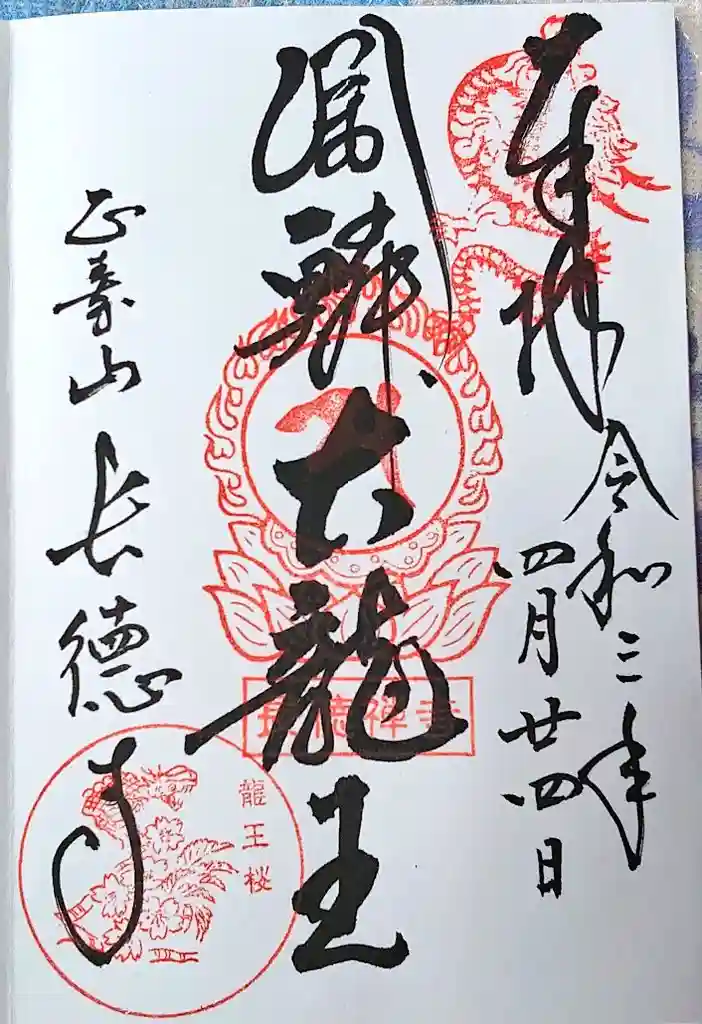 奉拝
令和三年
四月廿四日
大龍王
正寿山 長徳寺
長徳禅寺
龍王桜